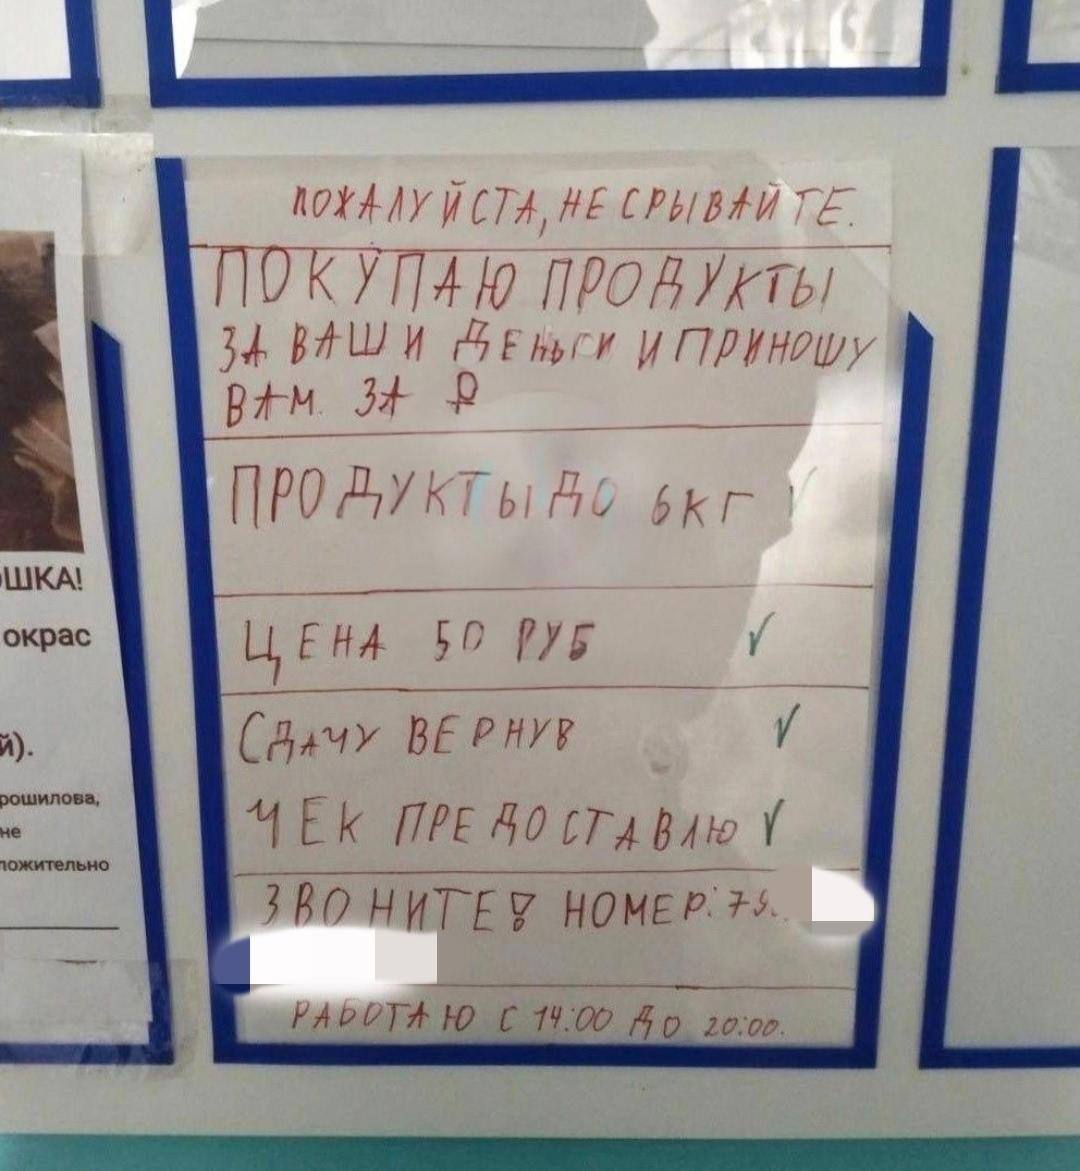 ПОЖАЛУЙСТА, НЕ СРЫВАЙТЕ.
ПОКУПАЮ ПРОДУКТЫ
ЗА ВАШИ ДЕНЬГИ И ПРИНОШУ
ВАМ. ЗА ₽
ПРОДУКТЫ ДО 6КГ ✓
ЦЕНА 50 РУБ ✓
СДАЧУ ВЕРНУВ ✓
ЧЕК ПРЕДОСТАВЛЮ ✓
ЗВОНИТЕ! НОМЕР: 79..
РАБОТАЮ С 14:00 ДО 20:00.
ОШКА!
окрас
й).
рошилова,
не
ложительно